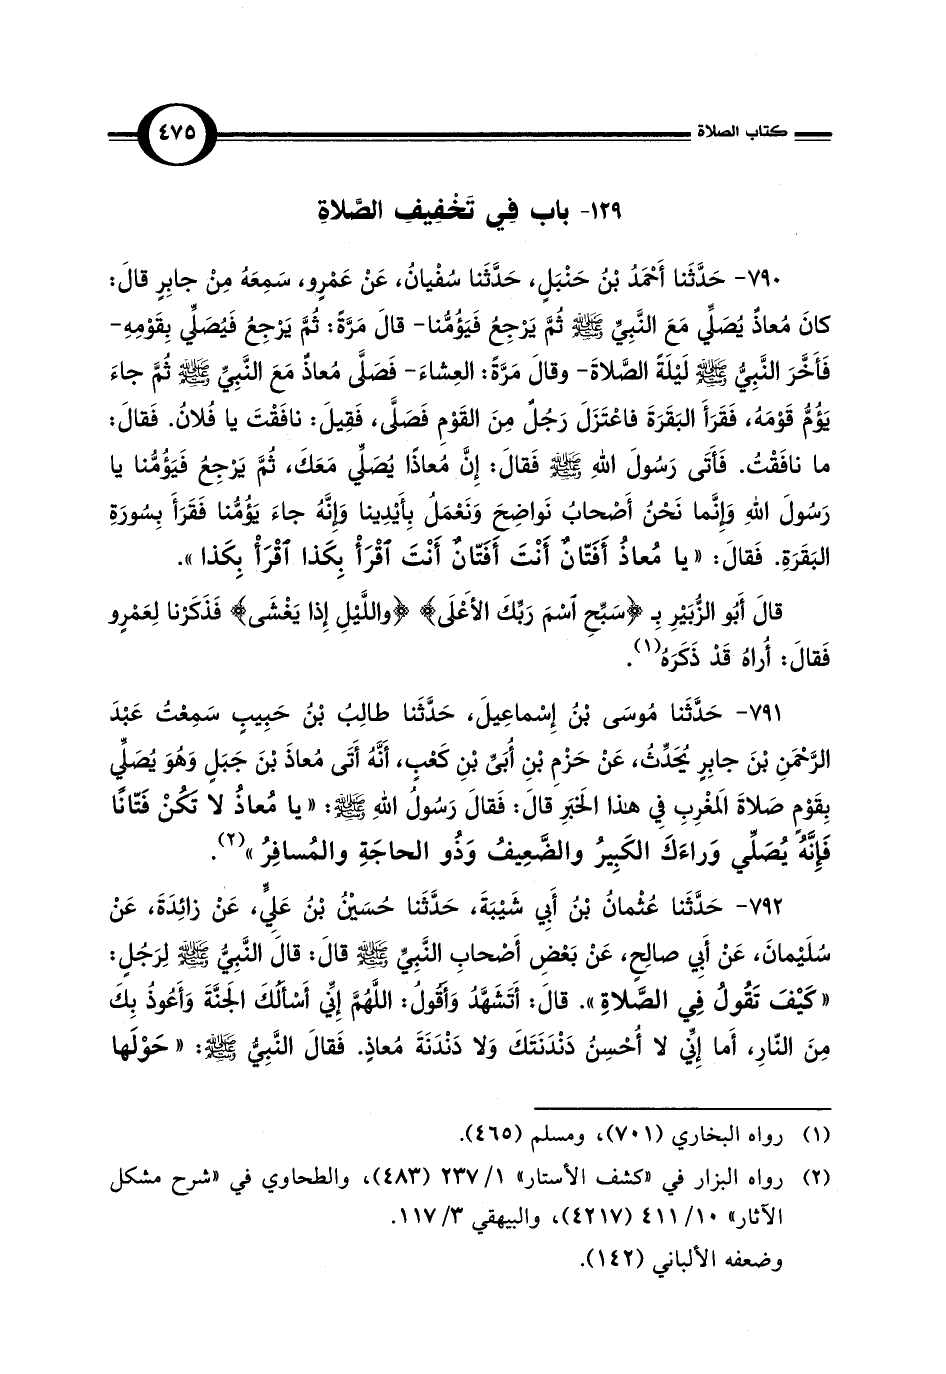 كتاب الصلاة
٤٧٥
١٢٩- باب فِي تَخْفِيفِ الصَّلاةِ
٧٩٠- حَدَّثَنا أَحْمَدُ بْنُ حَنْبَلٍ، حَدَّثَنا سُفْيانُ، عَنْ عَمْرٍو، سَمِعَهُ مِنْ جابِرٍ قالَ:
كانَ مُعاذٌ يُصَلِّي مَعَ النَّبِيِّ ﷺ ثُمَّ يَرْجِعُ فَيَؤُمُّنا- قالَ مَرَّةً: ثُمَّ يَرْجِعُ فَيُصَلِّي بِقَوْمِهِ-
فَأَخَّرَ النَّبِيُّ ﷺ لَيْلَةً الصَّلاةَ- وقالَ مَرَّةً: العِشاءَ- فَصَلَّى مُعاذٌ مَعَ النَّبِيِّ ﷺ ثُمَّ جاءَ
يَؤُمُّ قَوْمَهُ، فَقَرَأَ البَقَرَةَ فاعْتَزَلَ رَجُلٌ مِنَ القَوْمِ فَصَلَّى، فَقِيلَ: نافَقْتَ يا فُلانُ. فَقالَ:
ما نافَقْتُ. فَأَتَى رَسُولَ اللهِ ﷺ فَقالَ: إِنَّ مُعاذًا يُصَلِّي مَعَكَ، ثُمَّ يَرْجِعُ فَيَؤُمُّنا يا
رَسُولَ اللهِ وَإِنَّما نَحْنُ أَصْحابُ نَواضِحَ وَنَعْمَلُ بِأَيْدِينا وَإِنَّهُ جاءَ يَؤُمُّنا فَقَرَأَ بِسُورَةِ
البَقَرَةِ. فَقالَ: « يا مُعاذُ أَفَتّانٌ أَنْتَ أَفَتّانٌ أَنْتَ ٱقْرَأْ بِكَذا ٱقْرَأْ بِكَذا ».
قالَ أَبُو الزُّبَيْرِ بِـ ﴿سَبِّحِ ٱسْمَ رَبِّكَ الأَعْلَى﴾ ﴿واللَّيْلِ إِذا يَغْشَى﴾ فَذَكَرْنا لِعَمْرٍو
فَقالَ: أُراهُ قَدْ ذَكَرَهُ(١).
٧٩١- حَدَّثَنا مُوسَى بْنُ إِسْماعِيلَ، حَدَّثَنا طالِبُ بْنُ حَبِيبٍ سَمِعْتُ عَبْدَ
الرَّحْمَنِ بْنَ جابِرٍ يُحَدِّثُ، عَنْ حَزْمِ بْنِ أُبَيِّ بْنِ كَعْبٍ، أَنَّهُ أَتَى مُعاذَ بْنَ جَبَلٍ وَهُوَ يُصَلِّي
بِقَوْمٍ صَلاةَ المَغْرِبِ في هذا الخَبَرِ قالَ: فَقالَ رَسُولُ اللهِ ﷺ: « يا مُعاذُ لا تَكُنْ فَتّانًا
فَإِنَّهُ يُصَلِّي وَراءَكَ الكَبِيرُ والضَّعِيفُ وَذُو الحاجَةِ والمُسافِرُ »(٢).
٧٩٢- حَدَّثَنا عُثْمانُ بْنُ أَبِي شَيْبَةَ، حَدَّثَنا حُسَيْنُ بْنُ عَلِيٍّ، عَنْ زائِدَةَ، عَنْ
سُلَيْمانَ، عَنْ أَبِي صالِحٍ، عَنْ بَعْضِ أَصْحابِ النَّبِيِّ ﷺ قالَ: قالَ النَّبِيُّ ﷺ لِرَجُلٍ:
« كَيْفَ تَقُولُ فِي الصَّلاةِ ». قالَ: أَتَشَهَّدُ وَأَقُولُ: اللَّهُمَّ إِنِّي أَسْأَلُكَ الجَنَّةَ وَأَعُوذُ بِكَ
مِنَ النّارِ، أَما إِنِّي لا أُحْسِنُ دَنْدَنَتَكَ وَلا دَنْدَنَةَ مُعاذٍ. فَقالَ النَّبِيُّ ﷺ: « حَوْلَها
(١) رواه البخاري (٧٠١)، ومسلم (٤٦٥).
(٢) رواه البزار في «كشف الأستار» ١/ ٢٣٧ (٤٨٣)، والطحاوي في «شرح مشكل
الآثار» ١٠/ ٤١١ (٤٢١٧)، والبيهقي ٣/ ١١٧.
وضعفه الألباني (١٤٢).